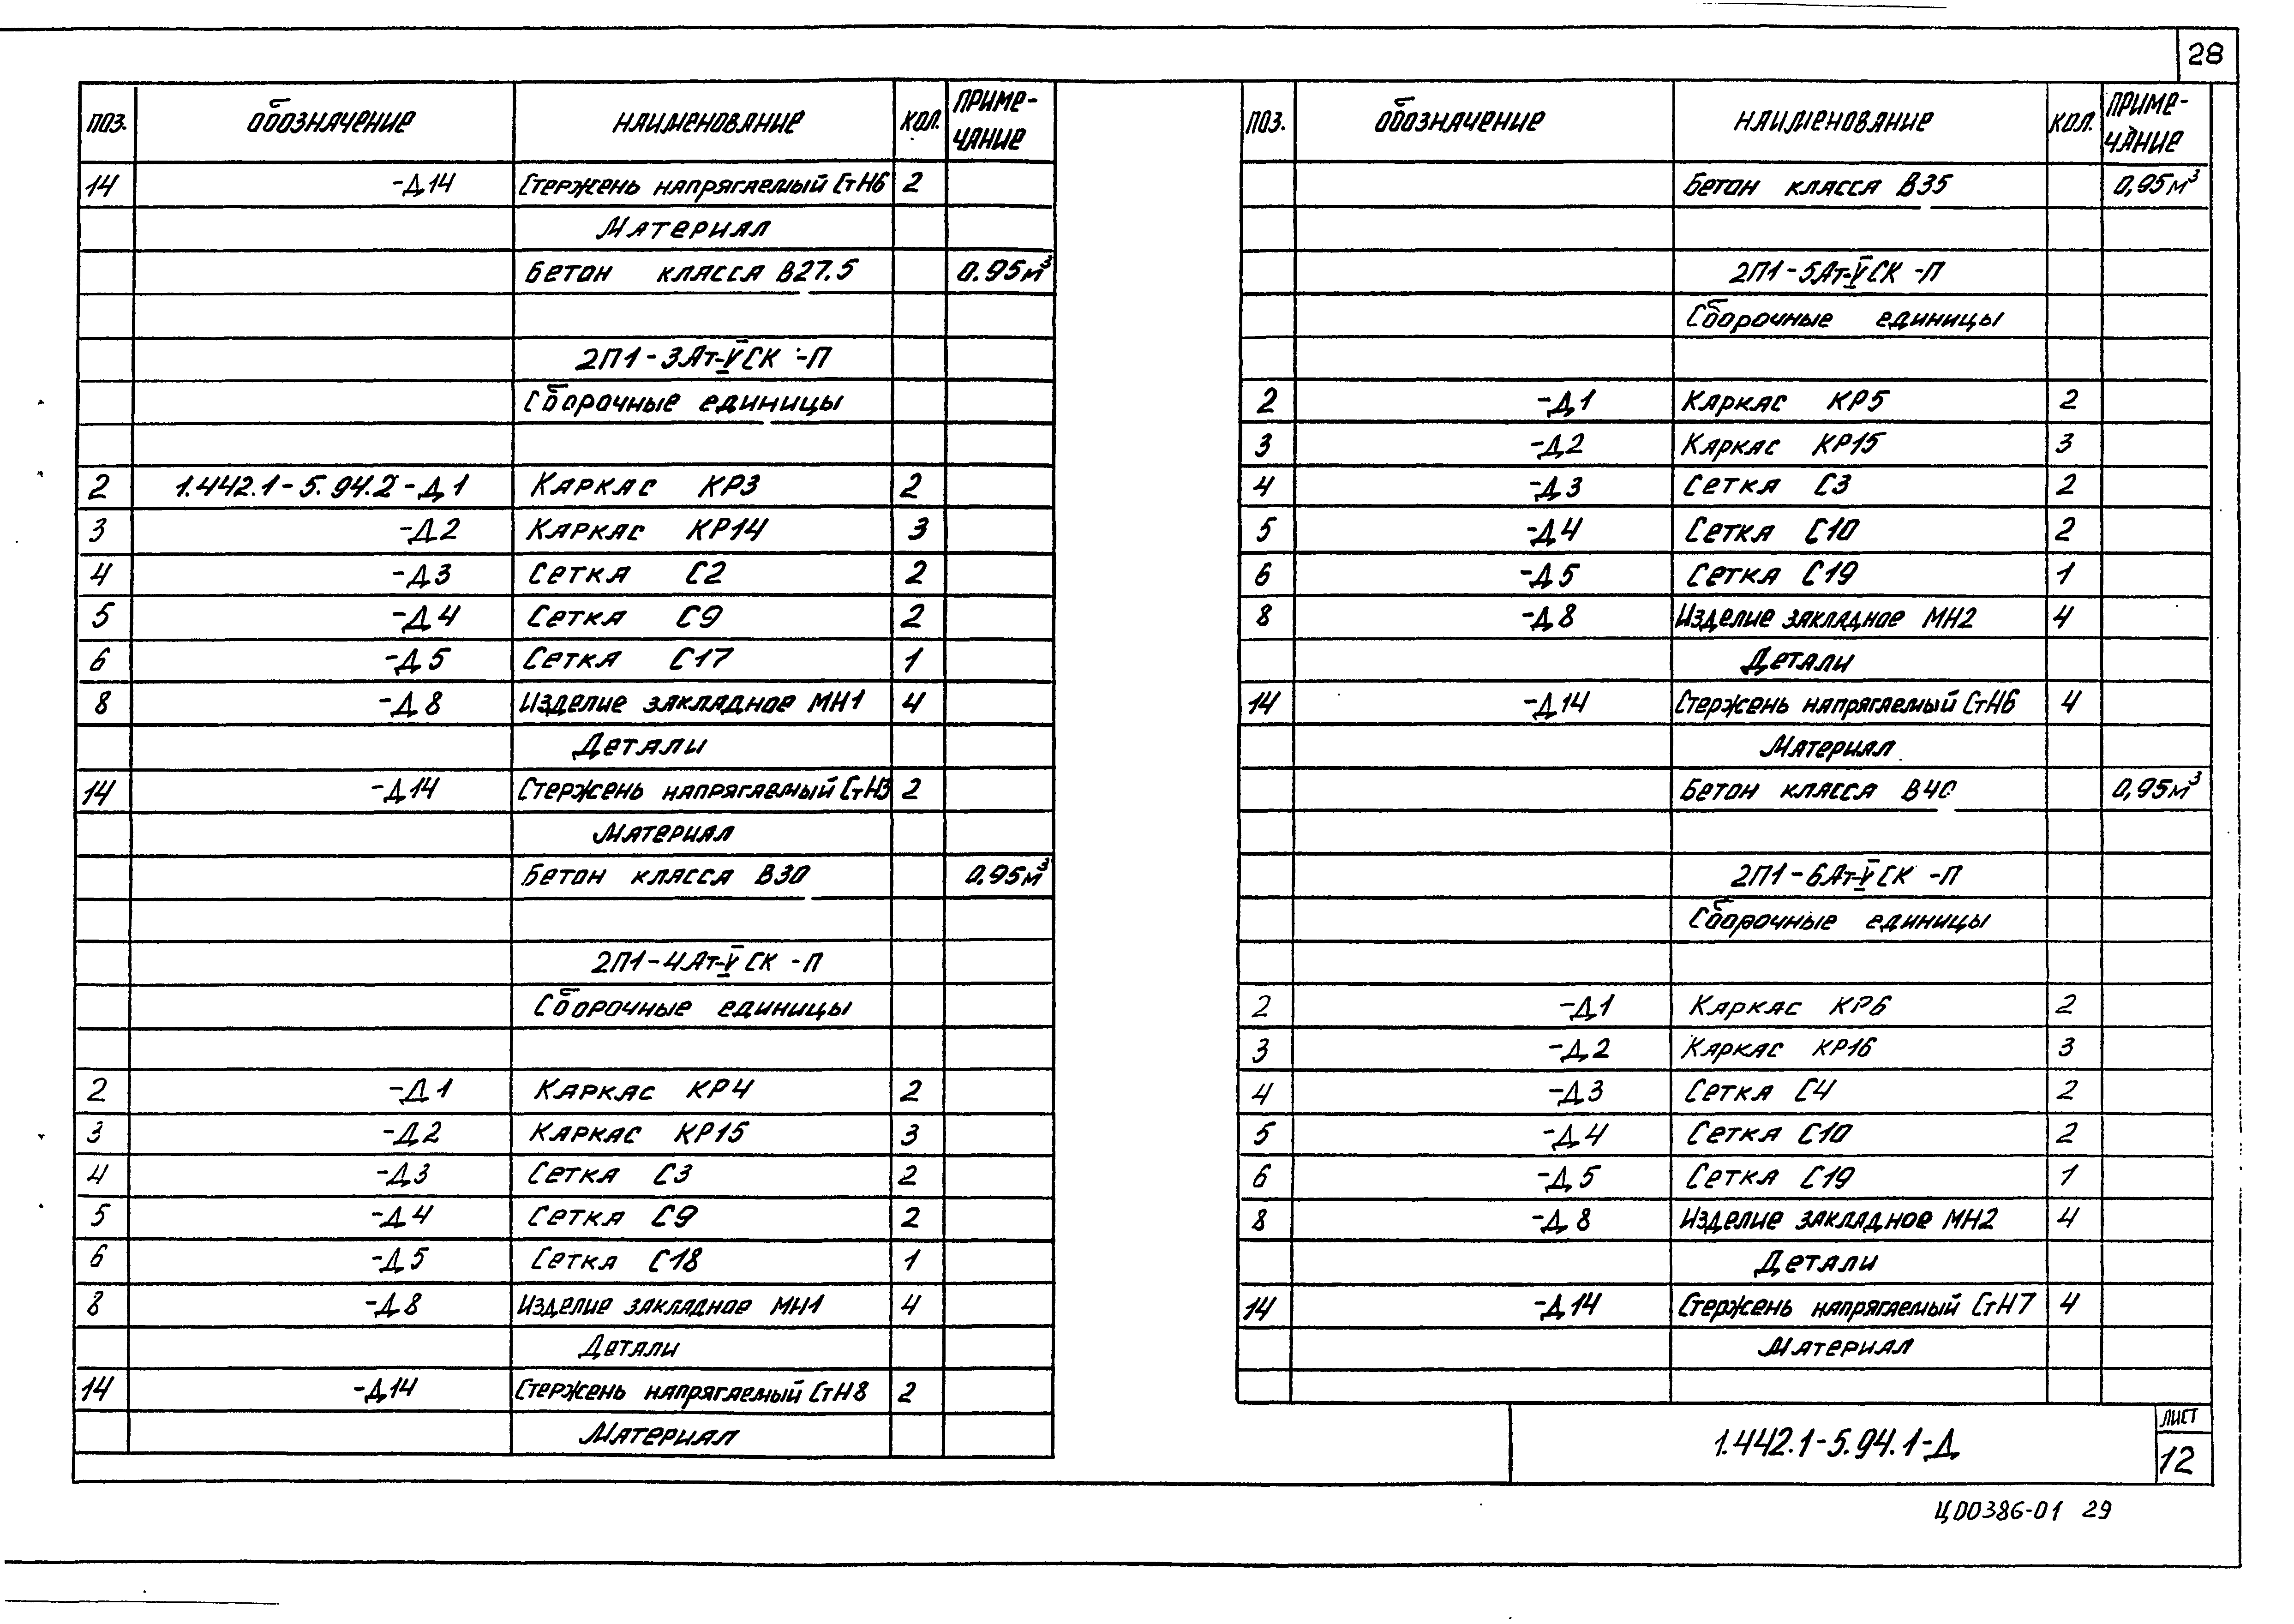 28
ПОЗ. ОБОЗНАЧЕНИЕ НАИМЕНОВАНИЕ КОЛ. ПРИМЕ-
ЧАНИЕ
14 -Д14 Стержень напрягаемый СтН6 2
Материал
Бетон класса В27.5 0.95м³
2П1-3Ат-VСК -П
Сборочные единицы
2 1.442.1-5.94.2-Д1 Каркас КР3 2
3 -Д2 Каркас КР14 3
4 -Д3 Сетка С2 2
5 -Д4 Сетка С9 2
6 -Д5 Сетка С17 1
8 -Д8 Изделие закладное МН1 4
Детали
14 -Д14 Стержень напрягаемый СтН3 2
Материал
Бетон класса В30 0.95м³
2П1-4Ат-VСК -П
Сборочные единицы
2 -Д1 Каркас КР4 2
3 -Д2 Каркас КР15 3
4 -Д3 Сетка С3 2
5 -Д4 Сетка С9 2
6 -Д5 Сетка С18 1
8 -Д8 Изделие закладное МН1 4
Детали
14 -Д14 Стержень напрягаемый СтН8 2
Материал
ПОЗ. ОБОЗНАЧЕНИЕ НАИМЕНОВАНИЕ КОЛ. ПРИМЕ-
ЧАНИЕ
Бетон класса В35 0,95м³
2П1-5Ат-VСК -П
Сборочные единицы
2 -Д1 Каркас КР5 2
3 -Д2 Каркас КР15 3
4 -Д3 Сетка С3 2
5 -Д4 Сетка С10 2
6 -Д5 Сетка С19 1
8 -Д8 Изделие закладное МН2 4
Детали
14 -Д14 Стержень напрягаемый СтН6 4
Материал
Бетон класса В40 0,95м³
2П1-6Ат-VСК -П
Сборочные единицы
2 -Д1 Каркас КР6 2
3 -Д2 Каркас КР16 3
4 -Д3 Сетка С4 2
5 -Д4 Сетка С10 2
6 -Д5 Сетка С19 1
8 -Д8 Изделие закладное МН2 4
Детали
14 -Д14 Стержень напрягаемый СтН7 4
Материал
1.442.1-5.94.1-Д
ЛИСТ
12
Ц00386-01 29